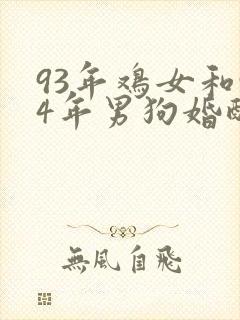 93年鸡女和
4年男狗婚配
無風自飛